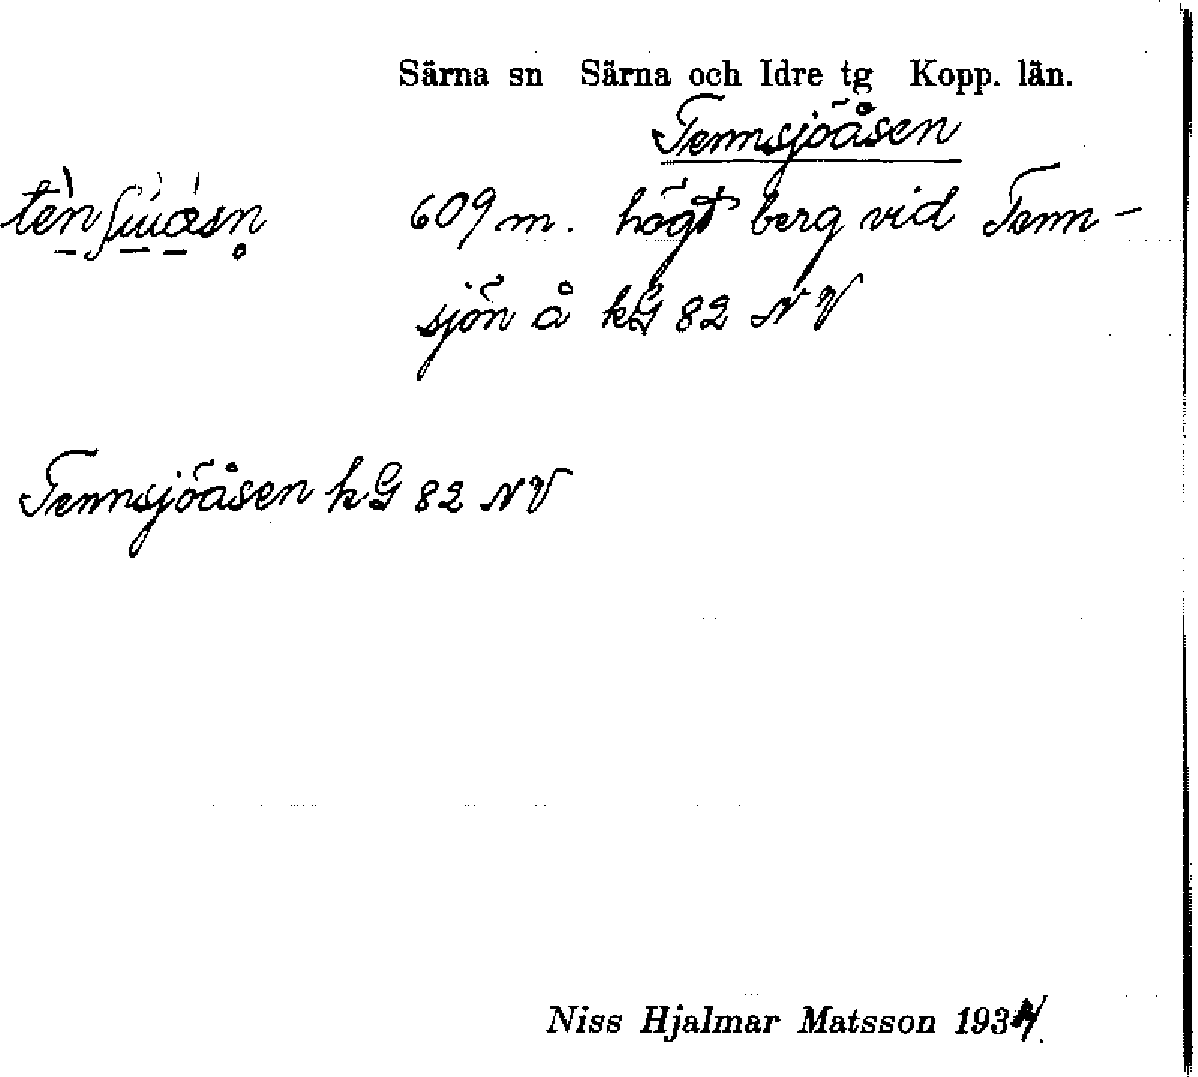 Särna sn Särna och Idre tg Kopp. län.
Tennsjöåsen
609 m. högt berg vid Tenn-
sjön å kG 82 NV
Tennsjöåsen kG 82 NV
Niss Hjalmar Matsson 1934.